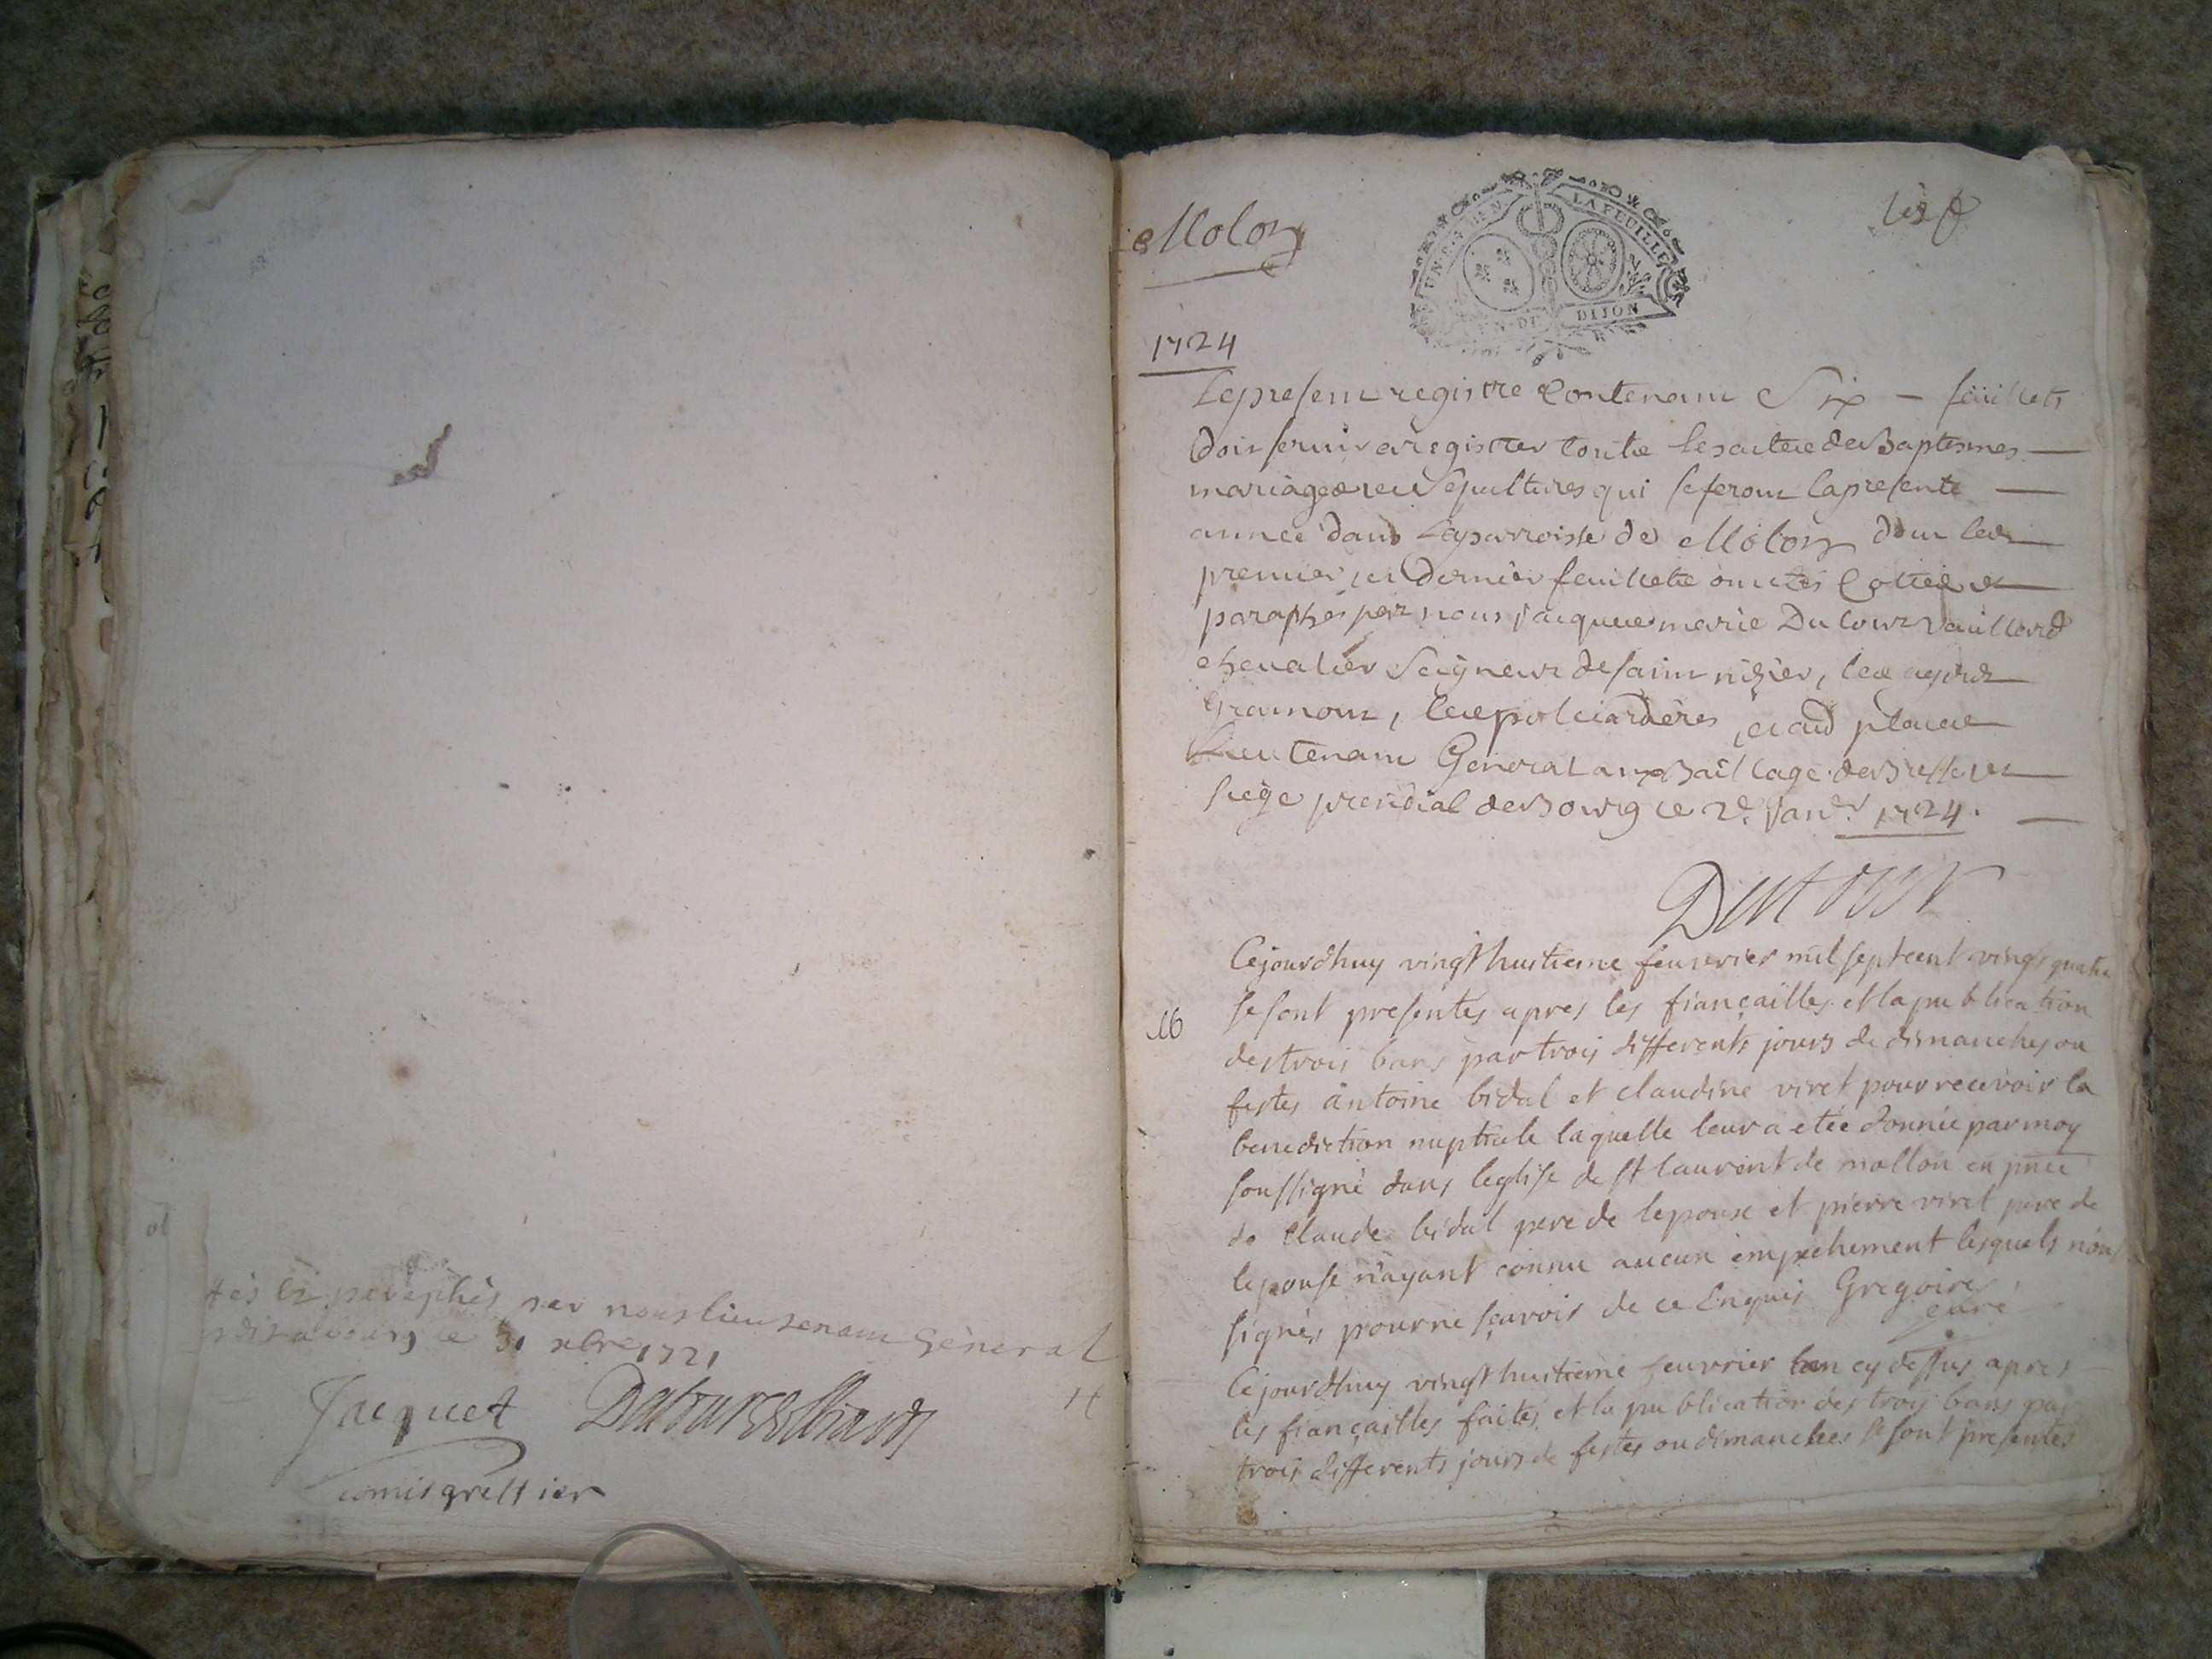 tés & paraphés par nous lieutenant General
a bourg ce 31 xbre 1721
Jacquet
comis greffier
Molon
LA FEUILLE
DIJON
1724
Le present registre Contenant Six — feuillets
Doit servir a registrer toutte les actes des Baptesmes —
mariages et Sepultures qui se feront la presente —
année dans La parroisse de Molon dont les —
premier et Dernier feuillets ont etés Cottés et —
paraphés par nous jacques marie Du tour Vuillard
chevalier Seigneur de saint nizier, les
Gramont,
Lieutenant General au Baillage de Bresse et —
siège presidial de Bourg ce 2e Janer 1724. —
Dutour
Cejourdhuy vingt huitieme feuverier mil septcent vingt quatre
M
se sont presentés apres les fiançailles et la publication
des trois bans par trois differents jours de dimanches ou
festes antoine bidal et claudine viret pour recevoir la
benediction nuptiale laquelle leur a etée donnée par moy
soussigné dans leglise de st laurent de mollon en pnce
de Claude bidal pere de lepoux et pierre viret pere de
lepouse n'ayant connu aucun empechement lesquels n'ont
signés pour ne sçavoir de ce Enquis Gregoire
curé
Cejourdhuy vingt huitieme feuvrier lan cy dessus apres
les fiançailles faites et la publication des trois bans par
trois differents jours de festes ou dimanches se sont presentés